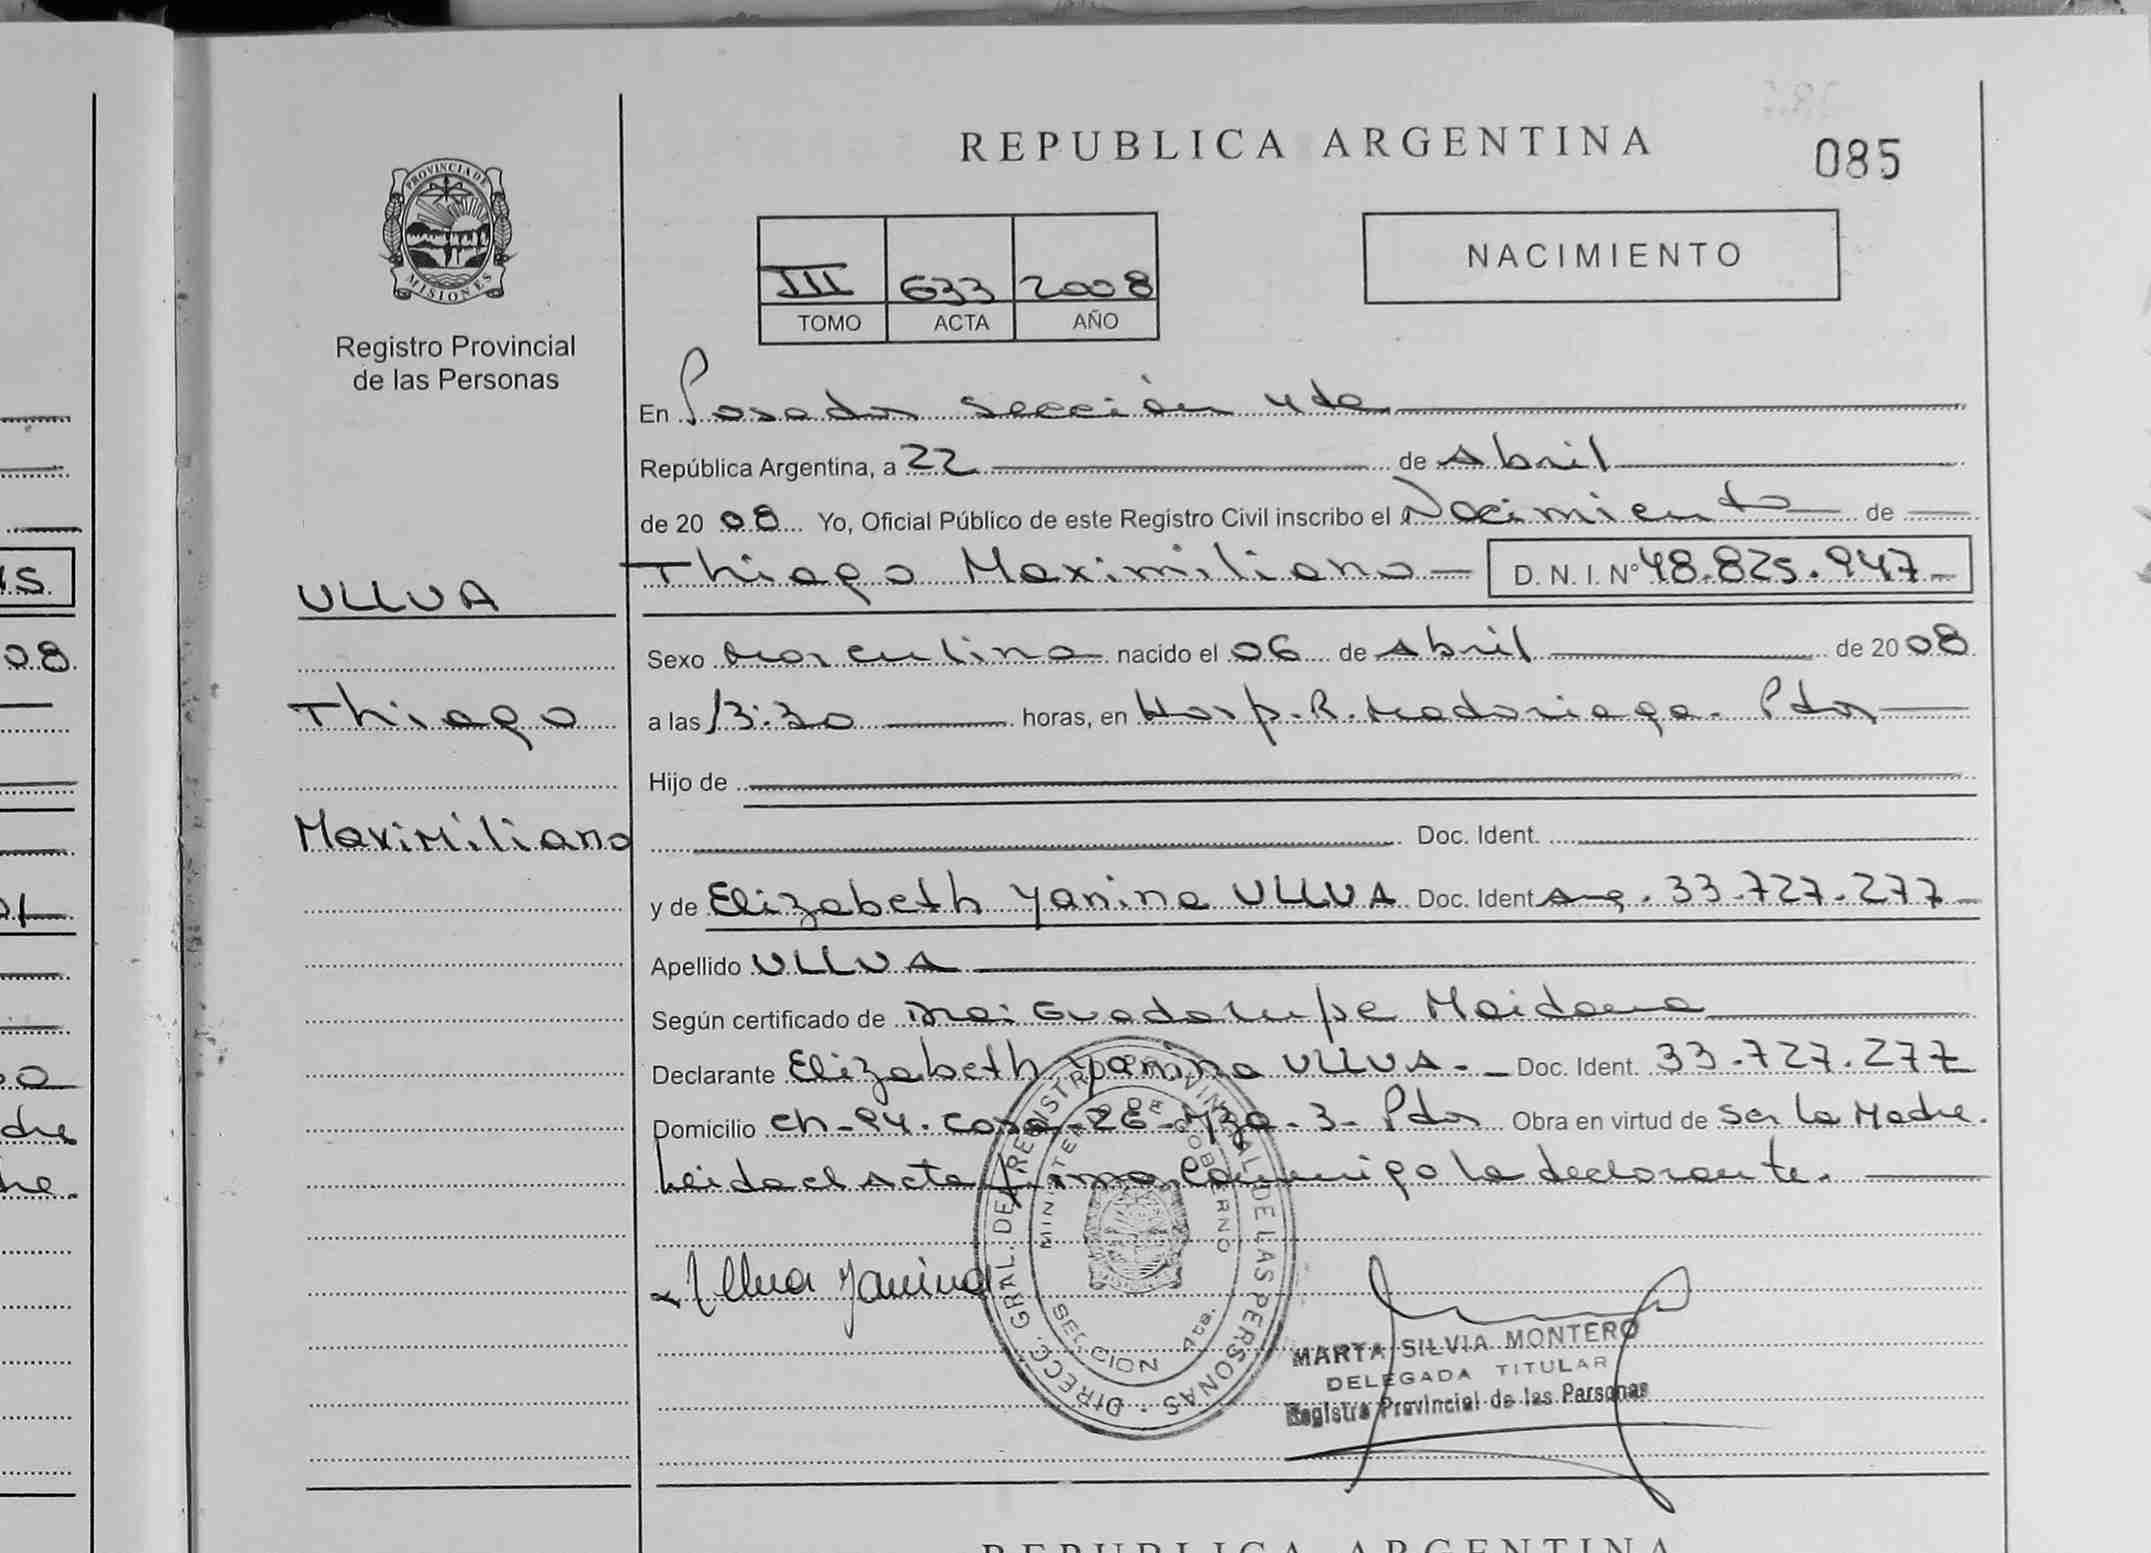 REPUBLICA ARGENTINA
085
PROVINCIA DE MISIONES
Registro Provincial
de las Personas
III 633 2008
TOMO ACTA AÑO
NACIMIENTO
En Posadas Sección 4ta
República Argentina, a 22 de Abril
de 2008 Yo, Oficial Público de este Registro Civil inscribo el Nacimiento de
Thiago Maximiliano D. N. I. Nº 48.825.947
ULLUA
Thiago
Maximiliano
Sexo Masculino nacido el 06 de Abril de 2008
a las 13:30 horas, en Hosp. R. Madariaga. Pdas
Hijo de
Doc. Ident.
y de Elizabeth Yanina ULLUA Doc. Ident Arg. 33.727.277
Apellido ULLUA
Según certificado de Guadalupe Maidana
Declarante Elizabeth Yanina ULLUA.- Doc. Ident. 33.727.277
Domicilio Ch-94. Casa-26-Mza-3- Pdas Obra en virtud de Ser la Madre.
Leida el Acta firma Conmigo la declarante.
Ullua Yanina
DIRECC. GRAL. DE REGISTRO PROVINCIAL DE LAS PERSONAS
MINISTERIO DE GOBIERNO
SECCION 4ta.
MARTA SILVIA MONTERO
DELEGADA TITULAR
Registro Provincial de las Personas
REPUBLICA ARGENTINA